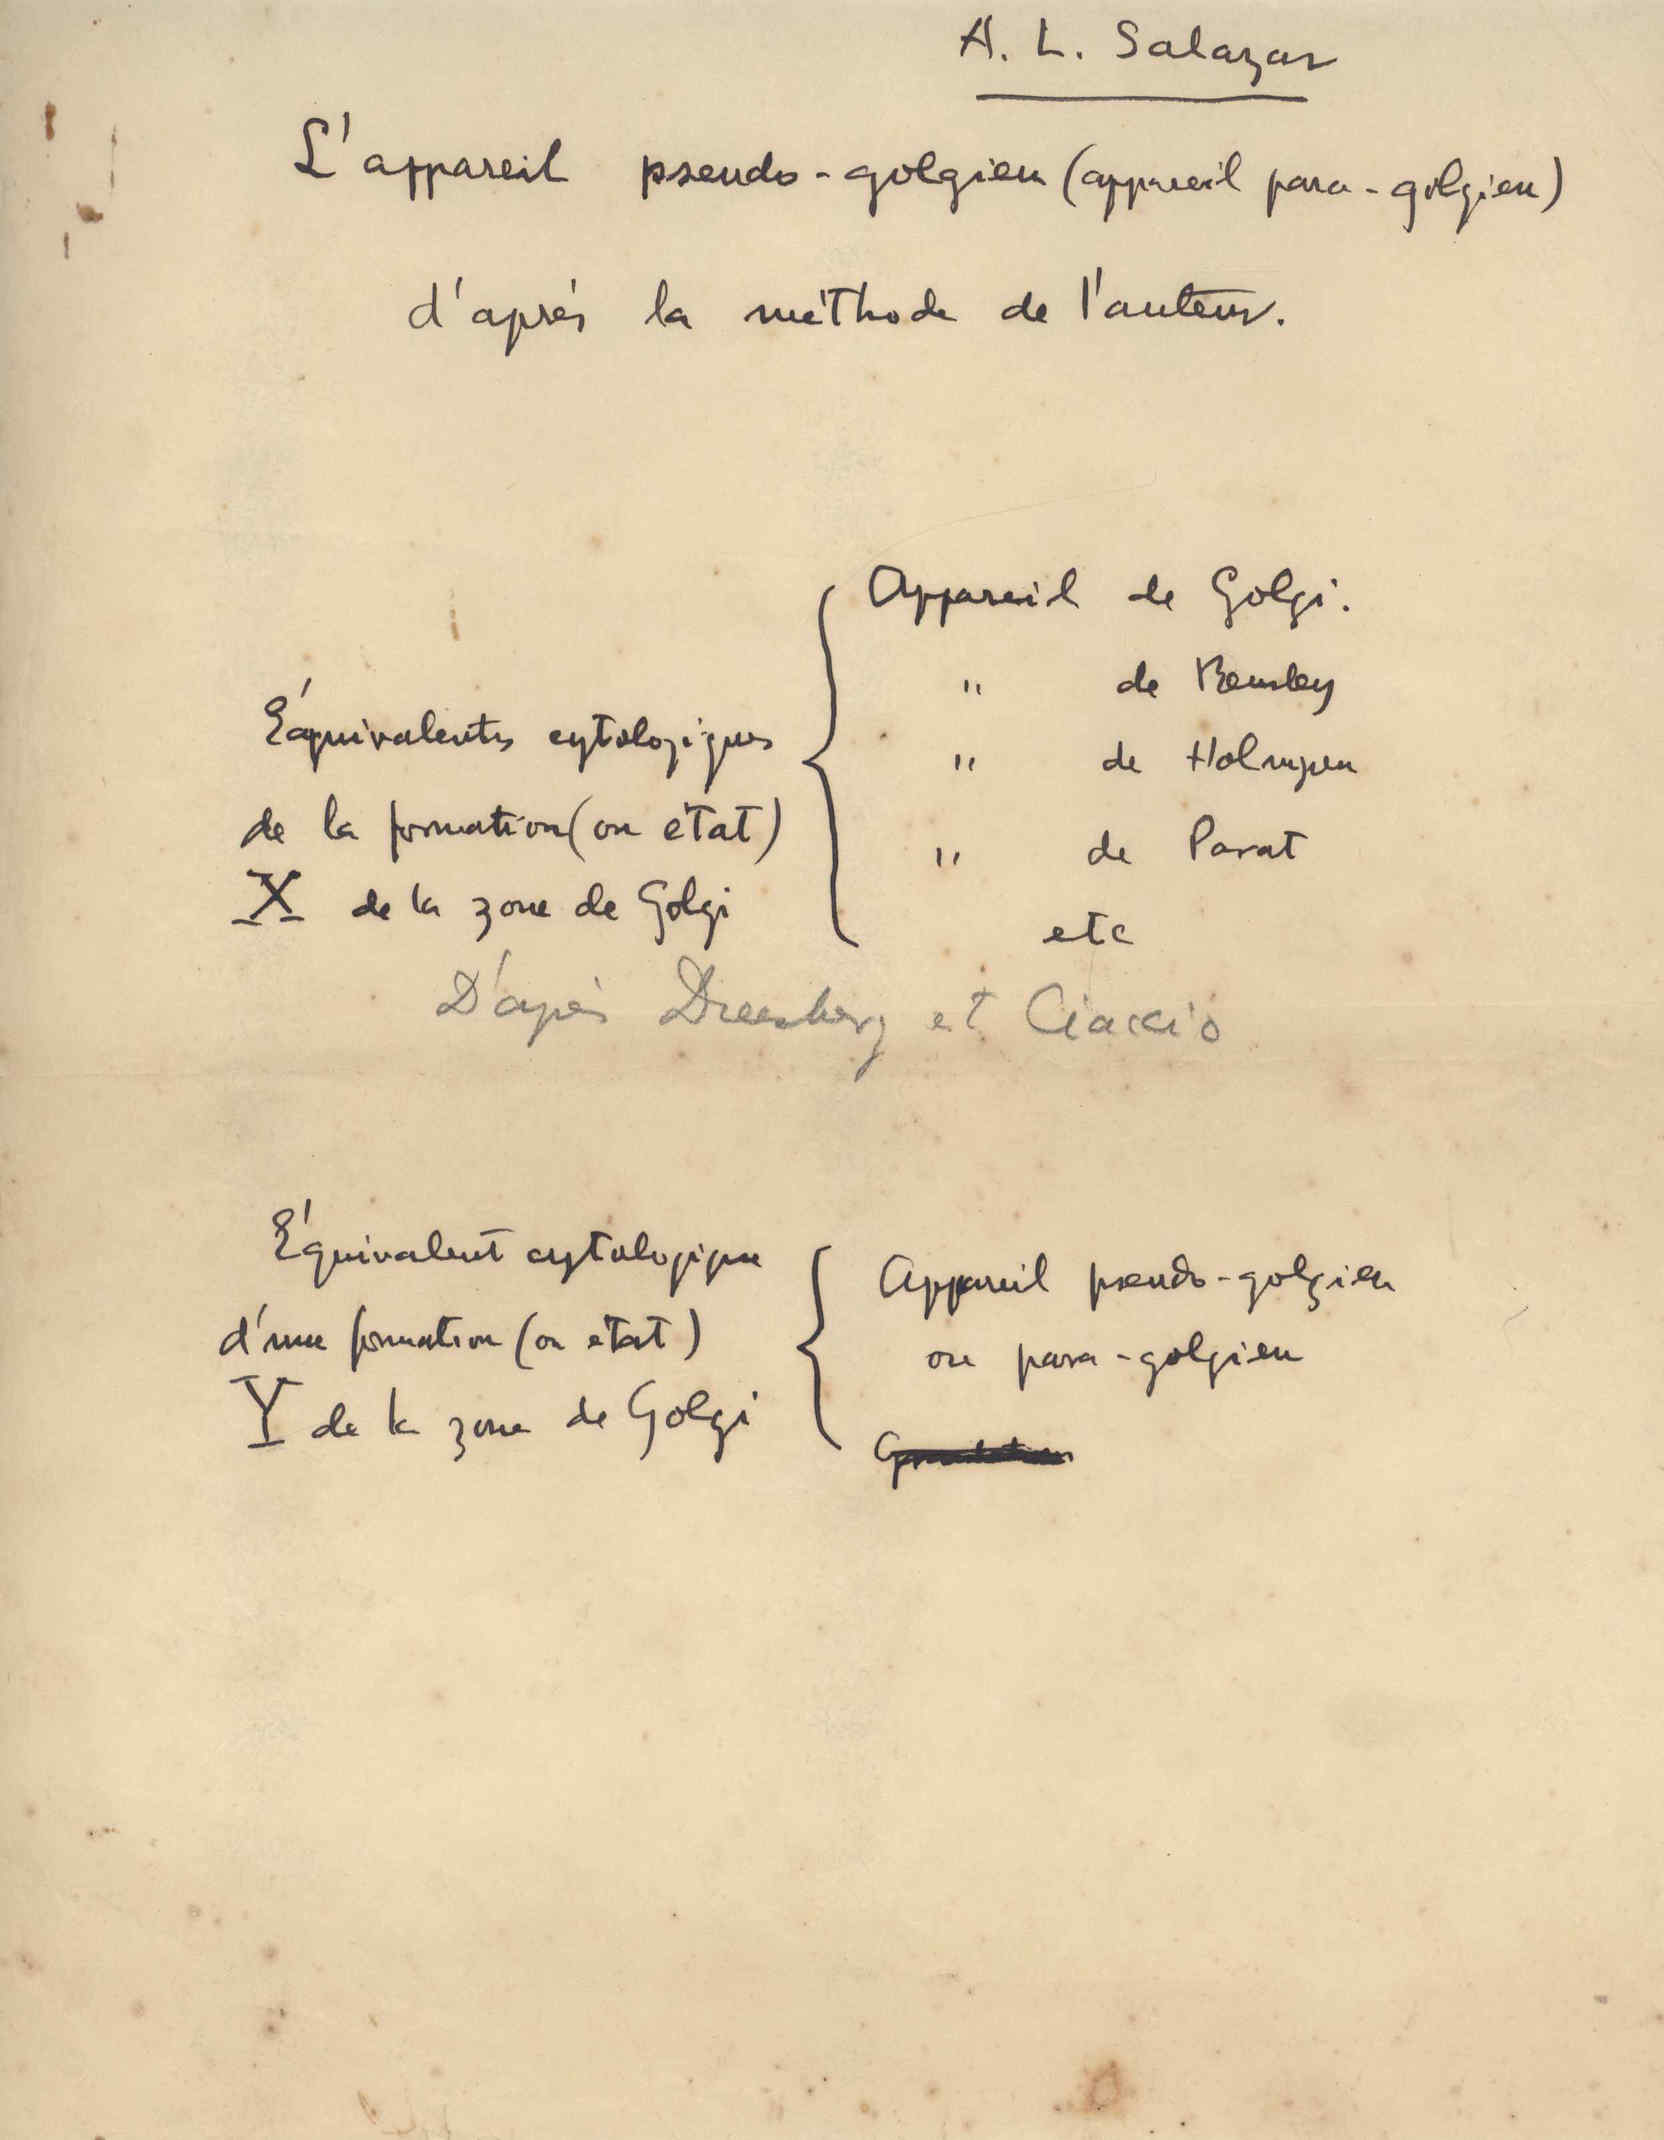 A. L. Salazar
L'appareil pseudo-golgien (appareil para-golgien)
d'après la méthode de l'auteur.
Appareil de Golgi.
" de Bensley
" de Holmgren
" de Parat
etc
Équivalents cytologiques
de la formation (ou état)
X de la zone de Golgi
D'après et Ciaccio
Équivalent cytologique
d'une formation (ou état)
Y de la zone de Golgi
Appareil pseudo-golgien
ou para-golgien